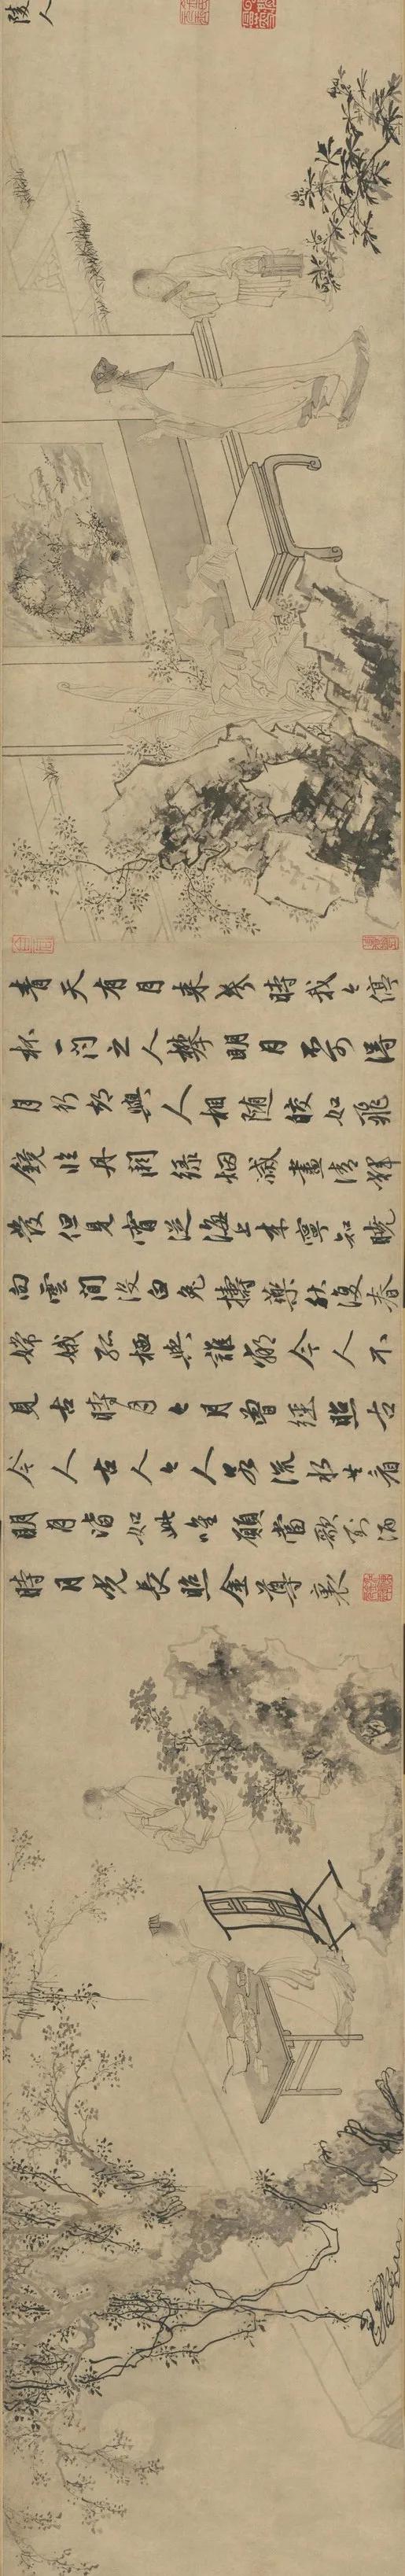 陵人
青天有月来幾時我今停
杯一問之人攀明月不可得
月行却與人相随皎如飛
鏡臨丹闕緑烟滅盡清輝
發但見宵從海上来寧知曉
向雲間没白兔擣藥秋復春
嫦娥孤栖與誰鄰今人不
見古時月今月曾經照古
今人古人今人若流水共看
明月皆如此唯願當歌對酒
時月光長照金尊裏